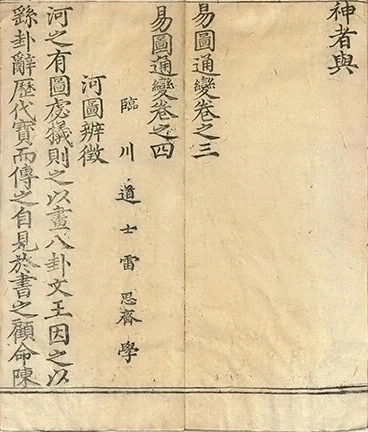 神者與
易圖通變卷之三
易圖通變卷之四
臨川道士雷思齋學
河圖辨徵
河之有圖虙犠則之以畫八卦文王因之以
繇卦辭歷代寶而傳之自見於書之顧命陳